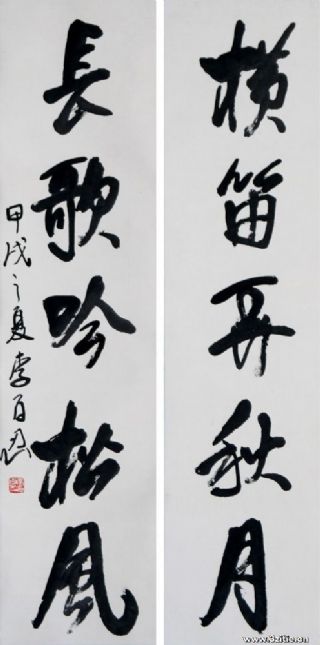 横笛弄秋月
長歌吟松風
甲戌之夏李百忍
www.3zitie.cn